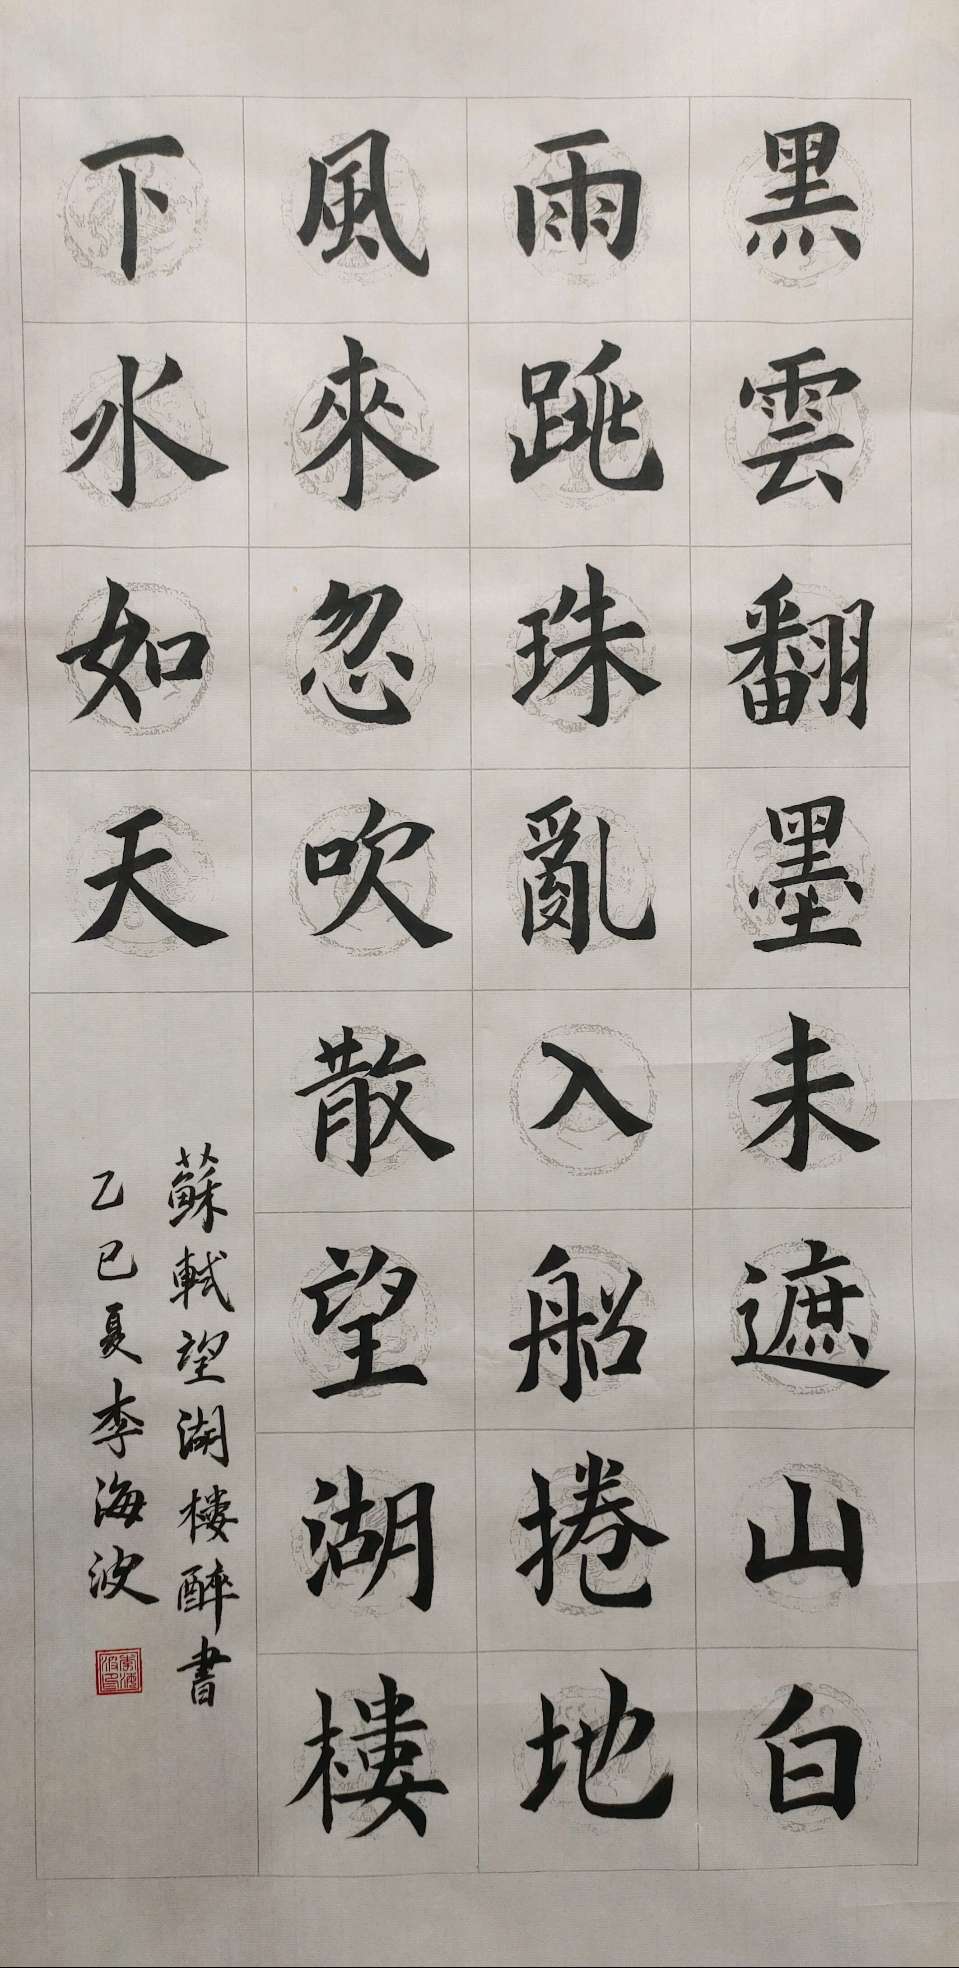 黑雲翻墨未遮山白
雨跳珠亂入船捲地
風來忽吹散望湖樓
下水如天
蘇軾望湖樓醉書
乙巳夏李海波